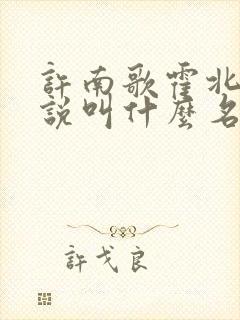 許南歌霍北
說叫什麼名
許戈良